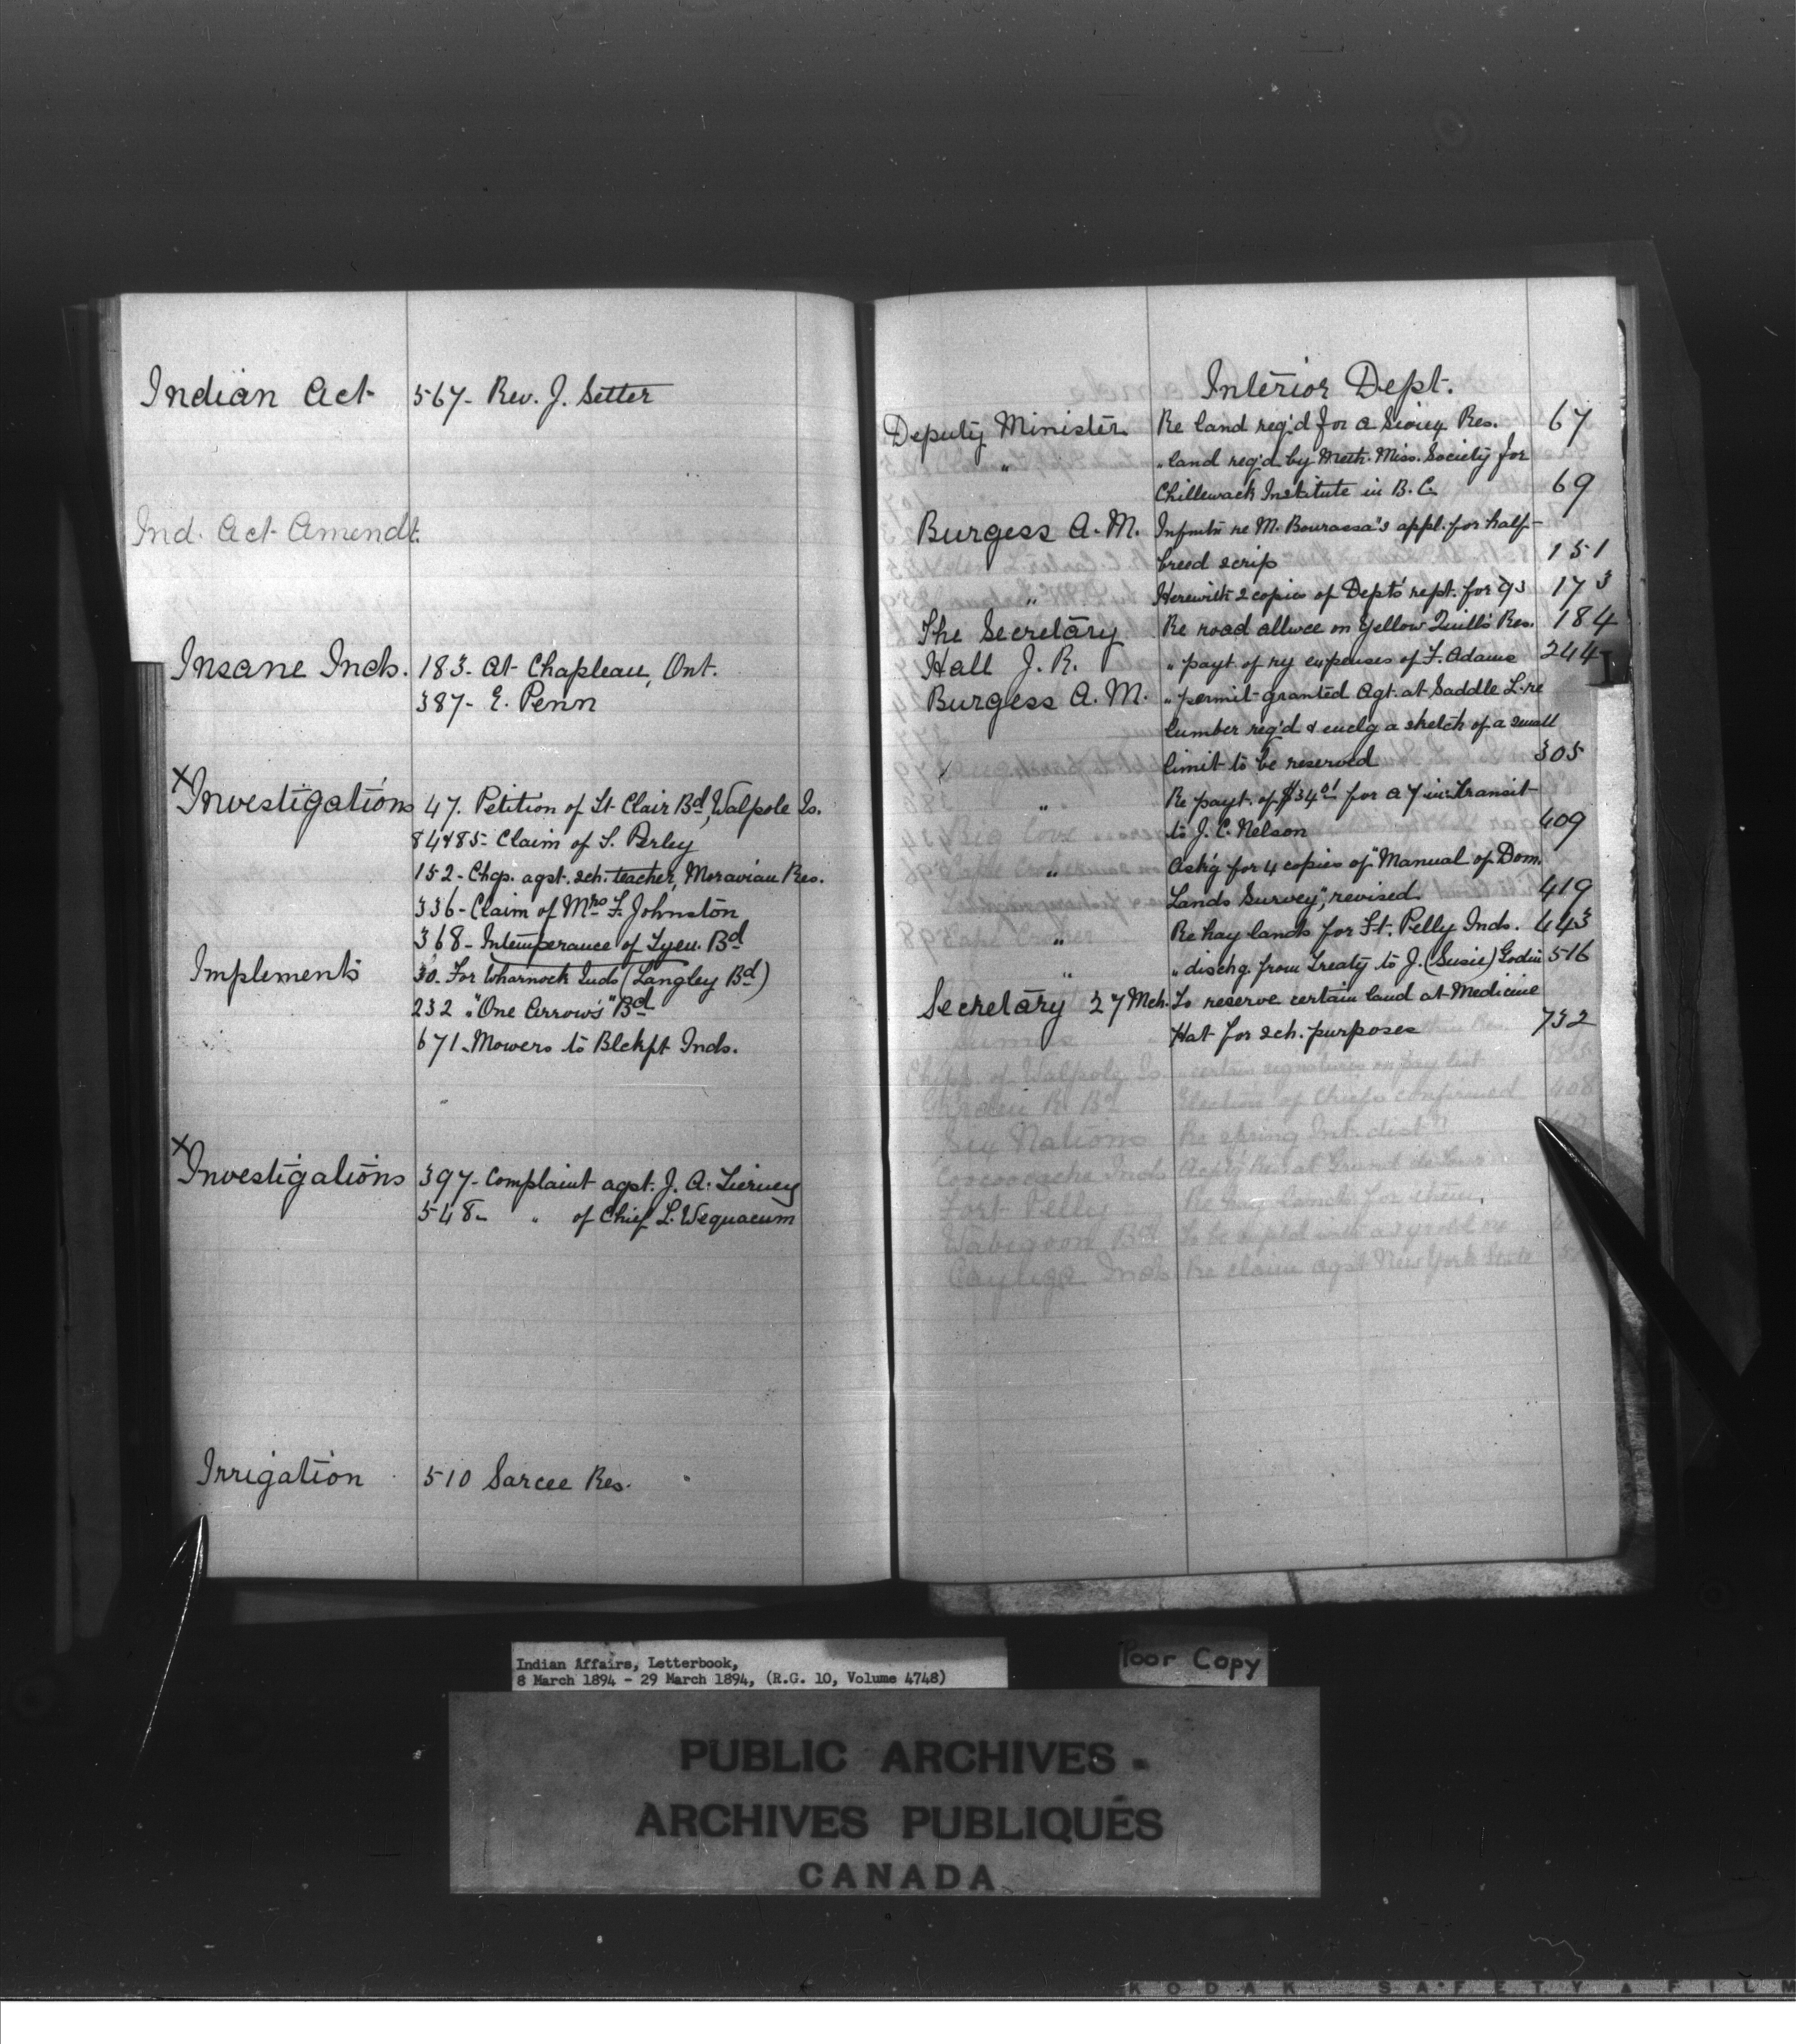 Indian Act 567- Rev. J. Setter
Ind. Act Amendt.
Insane Inds. 183- At Chapleau, Ont.
387- E. Penn
x Investigations 47. Petition of St Clair Bd, Walpole Is.
84&85- Claim of S. Perley
152- Chgs. agst. sch. teacher, Moravian Res.
336- Claim of Mrs F. Johnston
368- Intemperance of Tyen. Bd
Implements 30. For Wharnock Inds (Langley Bd)
232 " "One Arrow's" Bd
671- Mowers to Blckft Inds.
x Investigations 397- Complaint agst. J. A. Tierney
548- " of Chief L. Wequacum
Irrigation 510 Sarcee Res.
Interior Dept.
Deputy Minister Re land req'd for a Sioux Res. 67
" " land req'd by Meth. Miss. Society for
Chillewack Institute in B.C. 69
Burgess A. M. Infmtn re M. Bourassa's appl. for half-
breed scrip 151
" Herewith 2 copies of Dept's rept. for 93 173
The Secretary Re road allwce on Yellow Quill's Res. 184
Hall J. R. " payt. of ry expenses of F. Adams 244
Burgess A. M. " permit granted Agt. at Saddle L. re
lumber req'd & enclg a sketch of a small
limit to be reserved 305
" Re payt. of $34.01 for a 7 in: Transit
to J. C. Nelson 409
" Ask'g for 4 copies of "Manual of Dom.
Lands Survey", revised. 419
" Re hay lands for Ft. Pelly Inds. 443
" " dischg. from Treaty to J. (Susie) Godin 516
Secretary 27 Mch. To reserve certain land at Medicine
Hat for sch. purposes 732
Chipp. of Walpole Is. " certain signatures on pay list
Garden R. Bd Election of Chiefs confirmed 408
Six Nations Re spring Int. distn
Fort Pelly Re hay lands for them.
Wabigoon Bd
Cayuga Inds Re claim agst New York State
Indian Affairs, Letterbook,
8 March 1894 - 29 March 1894, (R.G. 10, Volume 4748)
Poor Copy
PUBLIC ARCHIVES
ARCHIVES PUBLIQUES
CANADA
KODAK SAFETY FILM